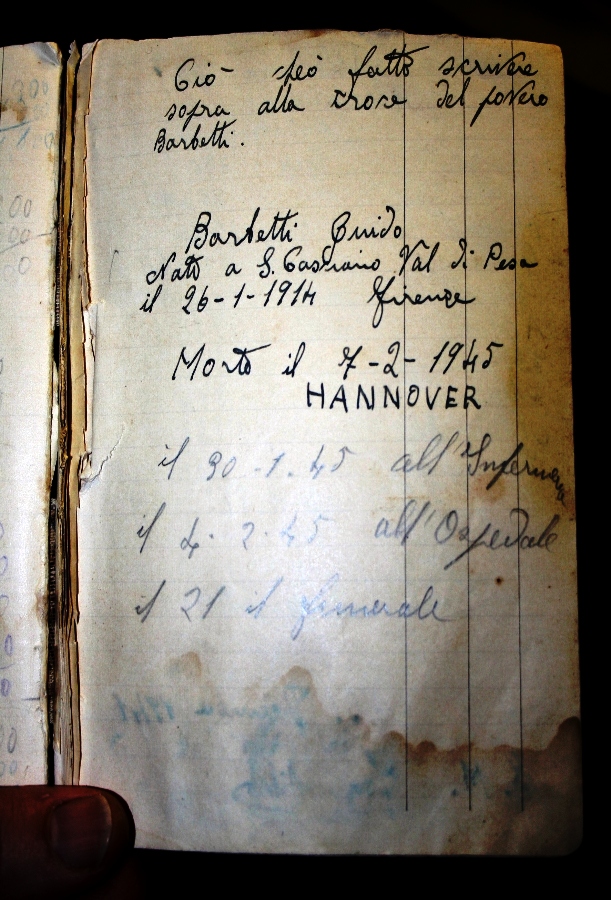 Ciò che ò fatto scrivere
sopra alla croce del povero
Barbetti.
Barbetti Guido
Nato a S. Casciano Val di Pesa
il 26-1-1914 Firenze
Morto il 7-2-1945
HANNOVER
il 30-1-45 all'Infermeria
il 4-2-45 all'Ospedale
il 21 il funerale